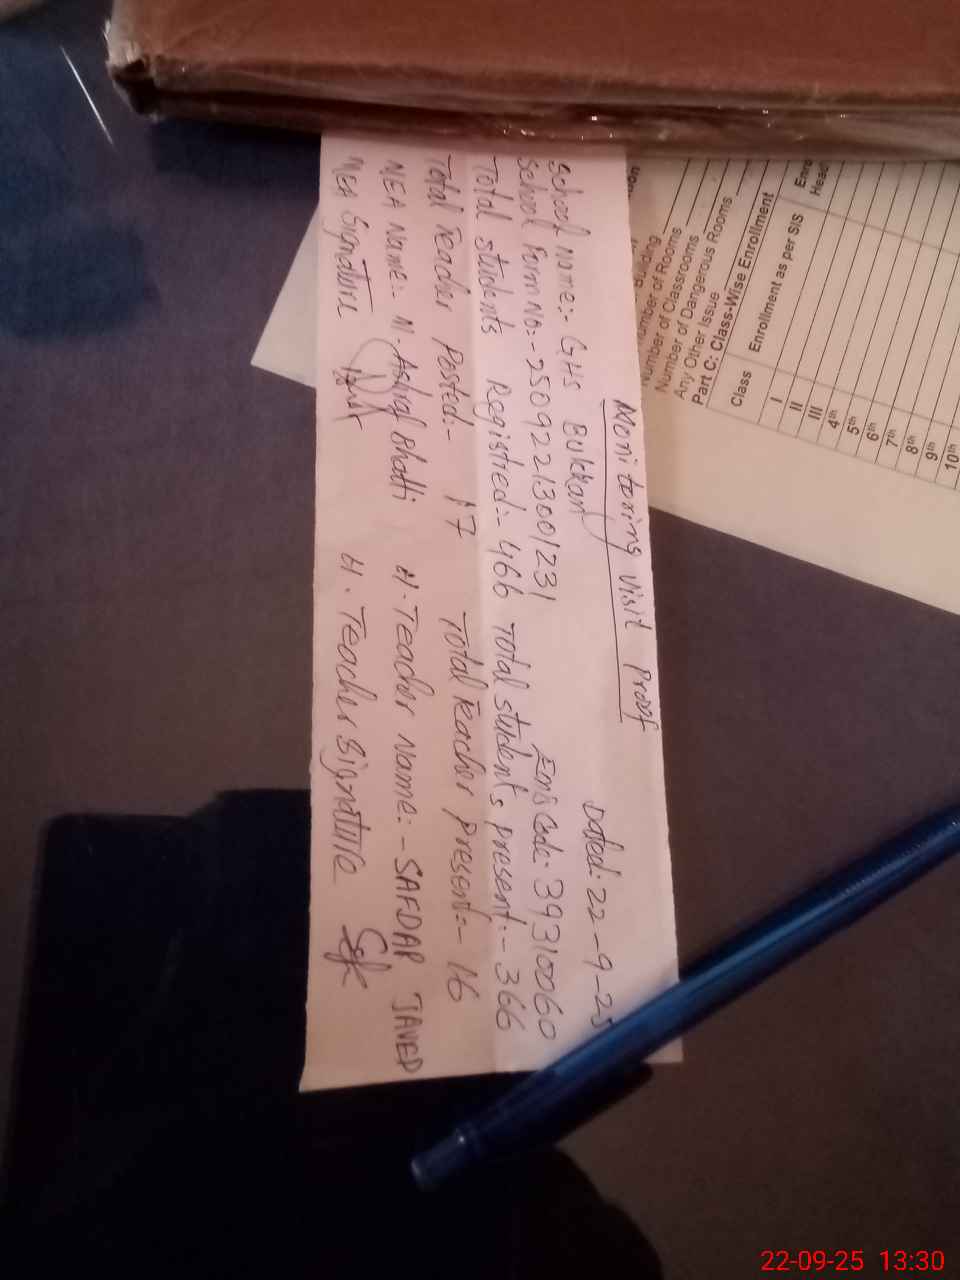 Monitoring Visit Proof
Dated: 22-9-25
School Name:- GHS Bukkan
School Form No:- 25092213001231 Emis Code: 39310060
Total students Registred:- 466 Total students present:- 366
Total Teacher Posted:- 17 Total Teacher present:- 16
MEA Name:- M. Ashraf Bhatti H. Teacher Name:- SAFDAR JAVED
MEA Signature H. Teacher Signature
Building
Number of Rooms
Number of Classrooms
Number of Dangerous Rooms
Any Other Issue
Part C: Class-Wise Enrollment
Class Enrollment as per SIS Head
I
II
III
4th
5th
6th
7th
8th
9th
10th
22-09-25 13:30